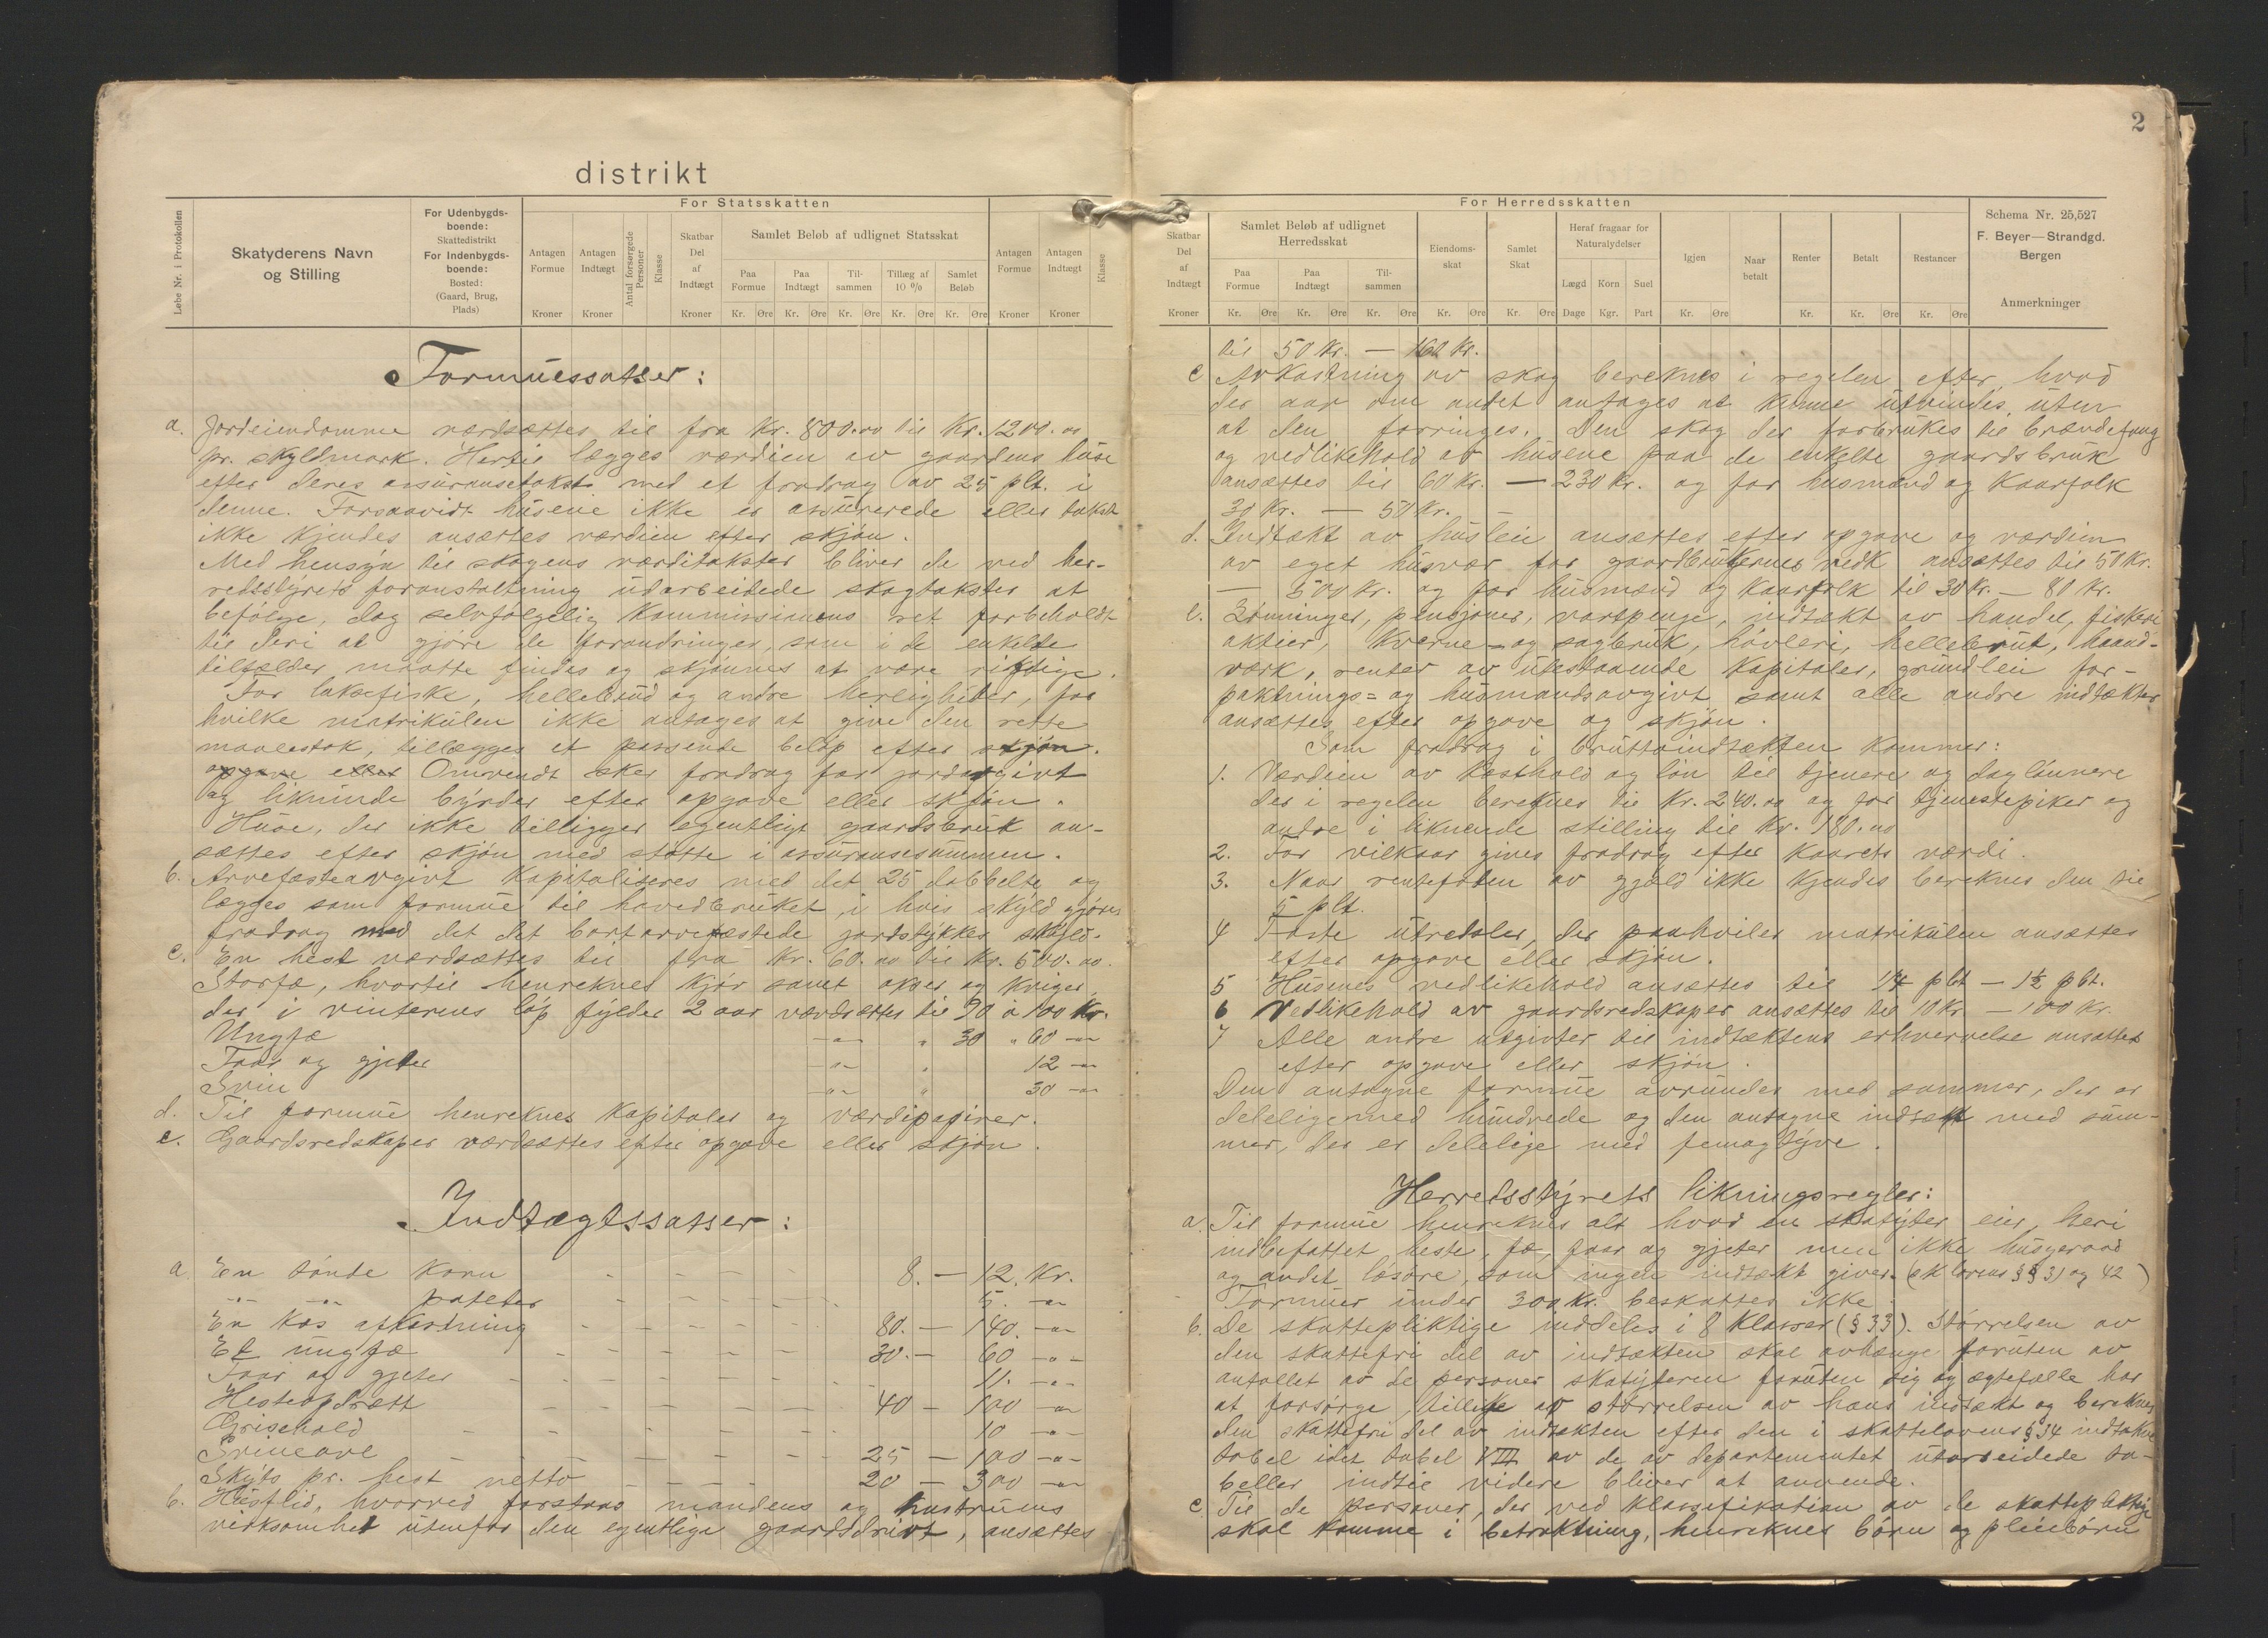 distrikt
Løbe Nr. i Protokollen
Skatyderens Navn
og Stilling
For Udenbygds-
boende:
Skattedistrikt
For Indenbygds-
boende:
Bosted:
(Gaard, Brug,
Plads)
For Statsskatten
Antagen
Formue
Kroner
Antagen
Indtægt
Kroner
Antal forsørgede
Personer
Klasse
Skatbar
Del
af
Indtægt
Kroner
Samlet Beløb af udlignet Statsskat
Paa
Formue
Paa
Indtægt
Til-
sammen
Tillæg af
10 %
Samlet
Beløb
Kr. Øre Kr. Øre Kr. Øre Kr. Øre Kr. Øre
Antagen
Formue
Kroner
Antagen
Indtægt
Kroner
Klasse
Formuessatser:
a. Jordeiendomme værdsættes til fra Kr. 800.00 til Kr. 1200.00
pr. skyldmark. Hertil lægges værdien av gaardens huse
efter deres assuransetakst med et fradrag av 25 plt. i
denne. Forsaavidt husene ikke er assurerede eller takst
ikke kjendes ansættes værdien efter skjøn.
Med hensyn til skogens værditakster bliver de ved her-
redsstyrets foranstaltning udarbeidede skogtakster at
befølge, dog selvfølgelig Kommissionens ret forbeholdt
til deri at gjøre de forandringer, som i de enkelte
tilfælder maatte findes og skjønnes at være riktige.
For laksefiske, hellebrud og andre herligheder, for
hvilke matrikulen ikke antages at give den rette
maalestok, tillægges et passende beløp efter skjøn.
opgave eller Omvendt sker fradrag for jordavgivt
og liknende byrder efter opgave eller skjøn.
Huse, der ikke tilligger egentligt gaardsbruk an-
sættes efter skjøn med støtte i assuransesummen.
b. Arvefæsteavgivt kapitaliseres med det 25 dobbelte og
lægges som formue til hovedbruket, i hvis skyld gjøres
fradrag med det det bortarvefæstede jordstykkes skyld.
c. En hest værdsættes til fra Kr. 60.00 til Kr. 500.00.
Storfæ, hvortil henreknes kjør samt okser og kviger,
der i vinterens løp fylder 2 aar værdsættes til 90 à 100 Kr.
Ungfæ -"- " 30 " 60 -"-
Faar og gjeter -"- " 12 -"-
Svin -"- " 30 -"-
d. Til formue henreknes Kapitaler og værdipapirer.
e. Gaardsredskaper værdsættes efter opgave eller skjøn.
Indtægtssatser:
a En tønde korn 8. – 12. Kr.
-"- -"- poteter 5. -"-
En køs afkastning 80. – 140. -"-
Et ungfæ 30. – 60 -"-
Faar og gjeter 11. -"-
Hesteopdræt 40 – 100 -"-
Grisehold 10 -"-
Svineavl 25 – 100 -"-
Skyts pr. hest netto 20 – 300 -"-
b. Husflid, hvorved forstaas mandens og hustruens
virksomhet utenfor den egentlige gaardsdrivt, ansættes
2
For Herredsskatten
Skatbar
Del
af
Indtægt
Kroner
Samlet Beløb af udlignet
Herredsskat
Paa
Formue
Paa
Indtægt
Til-
sammen
Kr. Øre Kr. Øre Kr. Øre
Eiendoms-
skat
Kr. Øre
Samlet
Skat
Kr. Øre
Heraf fragaar for
Naturalydelser
Lægd Korn Suel
Dage Kgr. Part
Igjen
Kr. Øre
Naar
betalt
Renter
Kr.
Betalt
Kr. Øre
Restancer
Kr. Øre
Schema Nr. 25,527
F. Beyer—Strandgd.
Bergen
Anmerkninger
til 50 Kr. – 160 Kr.
c Avkastning av skog bereknes i regelen efter, hvad
der aar om andet antages at kunne utvindes, uten
at den forringes. Den skog der forbrukes til brændefang
og vedlikehold av husene paa de enkelte gaardsbruk
ansættes til 60 Kr. – 230 Kr. og for husmænd og kaarfolk
30 Kr. – 50 Kr.
d. Indtækt av husleie ansættes efter opgave og værdien
av eget husvær for gaardbrukernes vedk. ansættes til 50 Kr.
– 500 Kr. og for husmænd og kaarfolk til 30 Kr. – 80 Kr.
e. Lønninger, pensjoner, vartpenge, indtækt av handel, fiskeri
aktier, kverne- og sagbruk, høvleri, hellebrut, haand-
værk, renter av utestaaende kapitaler, grundleie for-
paktnings= og husmandsavgivt samt alle andre indtækter
ansættes efter opgave og skjøn.
Som fradrag i bruttoindtækten kommer:
1. Værdien av kosthold og løn til tjenere og daglønnere
der i regelen bereknes til Kr. 240.00 og for tjenestepiker og
andre i liknende stilling til Kr. 180.00
2. For vilkaar gives fradrag efter kaarets værdi.
3. Naar rentefoten av gjæld ikke kjendes bereknes den til
5 plt.
4 Faste utredsler, der paahviler matrikulen ansættes
efter opgave eller skjøn.
5 Husenes vedlikehold ansættes til 1/4 plt – 1½ plt.
6 Vedlikehold av gaardsredskaper ansættes til 10 Kr. – 100 Kr.
7 Alle andre utgivter til indtæktens erhvervelse ansættes
efter opgave eller skjøn.
Den antagne formue avrundes med summer, der er
delelige med hundrede og den antagne indtækt med sum-
mer, der er delelige med femogtyve.
Herredsstyrets likningsregler:
a. Til formue henreknes alt hvad en skatyter eier, heri
indbefattet heste, fæ, faar og gjeter men ikke husgeraad
og andet løsøre, som ingen indtækt giver. (sk lovens §§ 31 og 42)
Formuer under 300 Kr. beskattes ikke.
b. De skattepliktige inddeles i 8 klasser (§ 33). Størrelsen av
den skattefri del av indtækten skal avhænge foruten av
antallet av de personer skatyteren foruten sig og ægtefælle har
at forsørge, tillike av størrelsen av hans indtækt og bereknes
den skattefri del av indtækten efter den i skattelovens § 34 indtakne
tabel idet tabel VIII av de av departementet utarbeidede ta-
beller indtil videre bliver at anvende.
c. Til de personer, der ved klassefikation av de skattepliktige
skal komme i betraktning, henreknes børn og pleiebørn